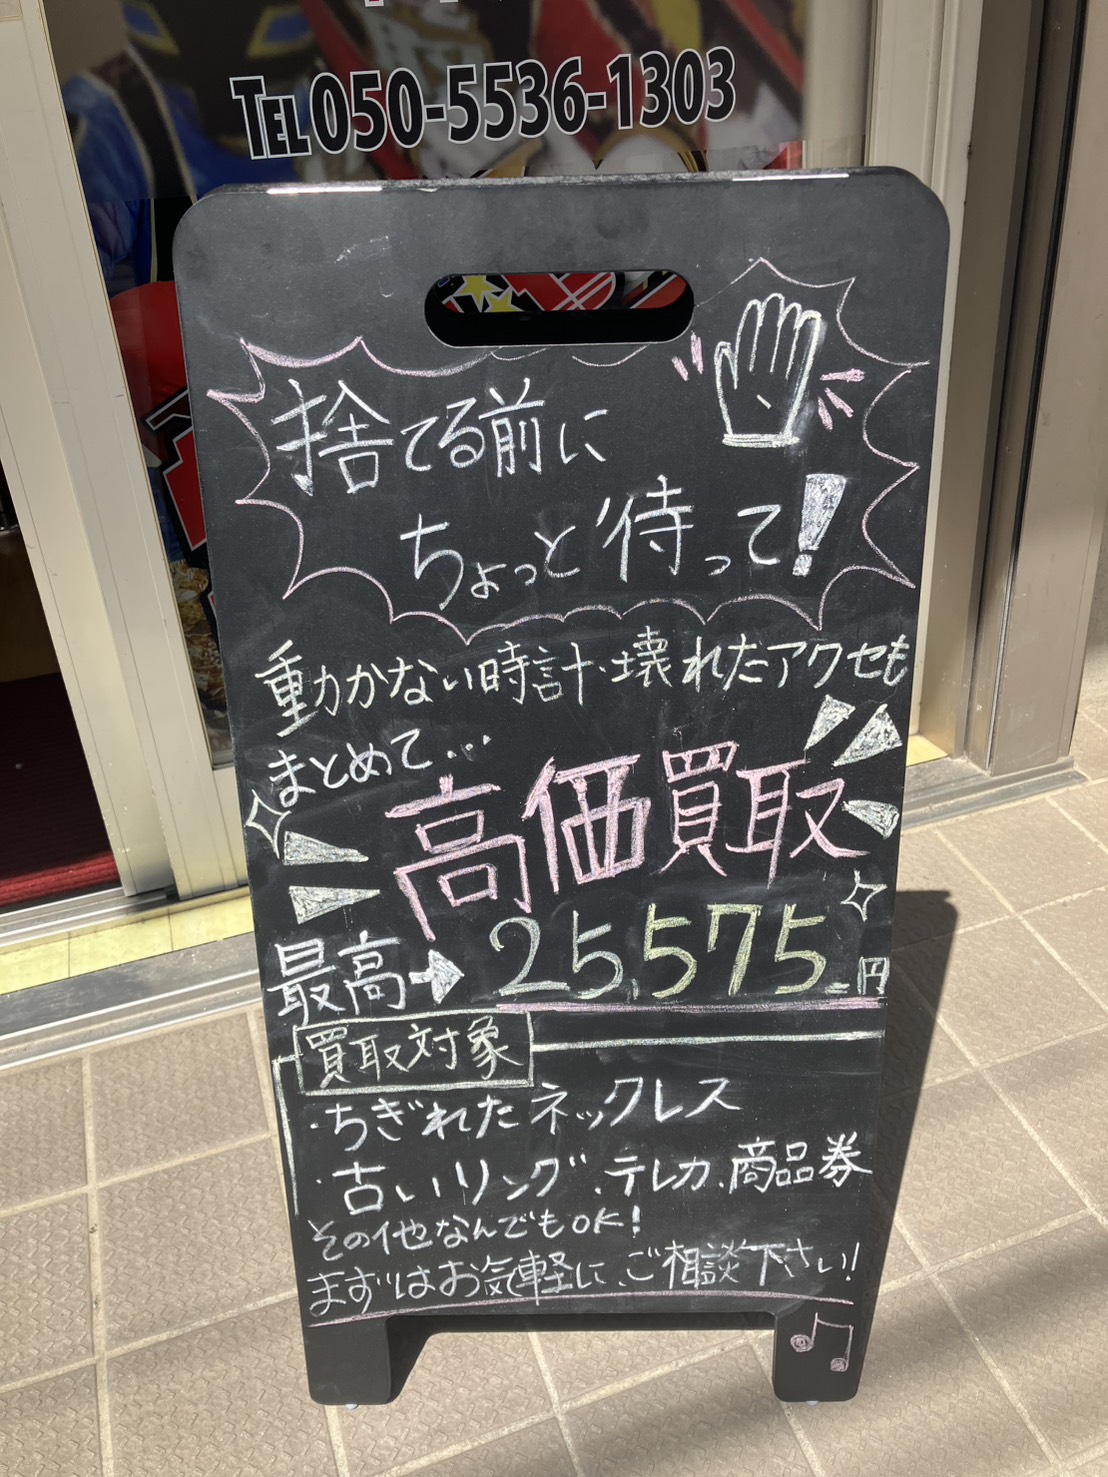 TEL 050-5536-1303
捨てる前に
ちょっと待って!
動かない時計・壊れたアクセも
まとめて...
高価買取
最高→25,575円
買取対象
・ちぎれたネックレス
・古いリング、テレカ、商品券
その他なんでもOK!
まずはお気軽にご相談下さい!